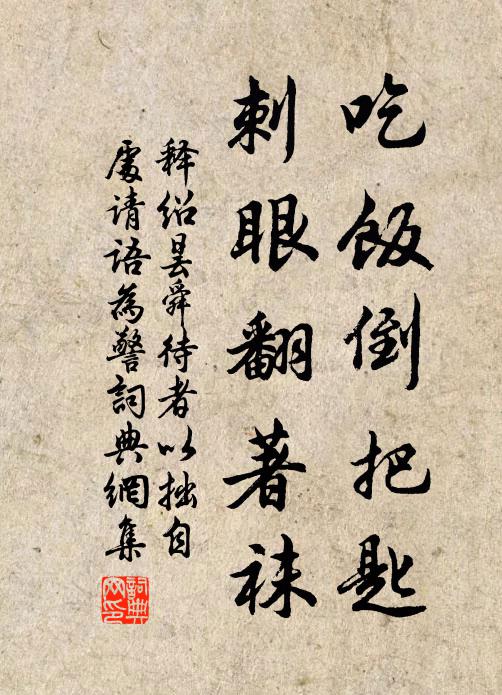 吃飯倒把匙
刺眼翻著袜
释绍昙舜待者以拙自
處请语為警詞典網集